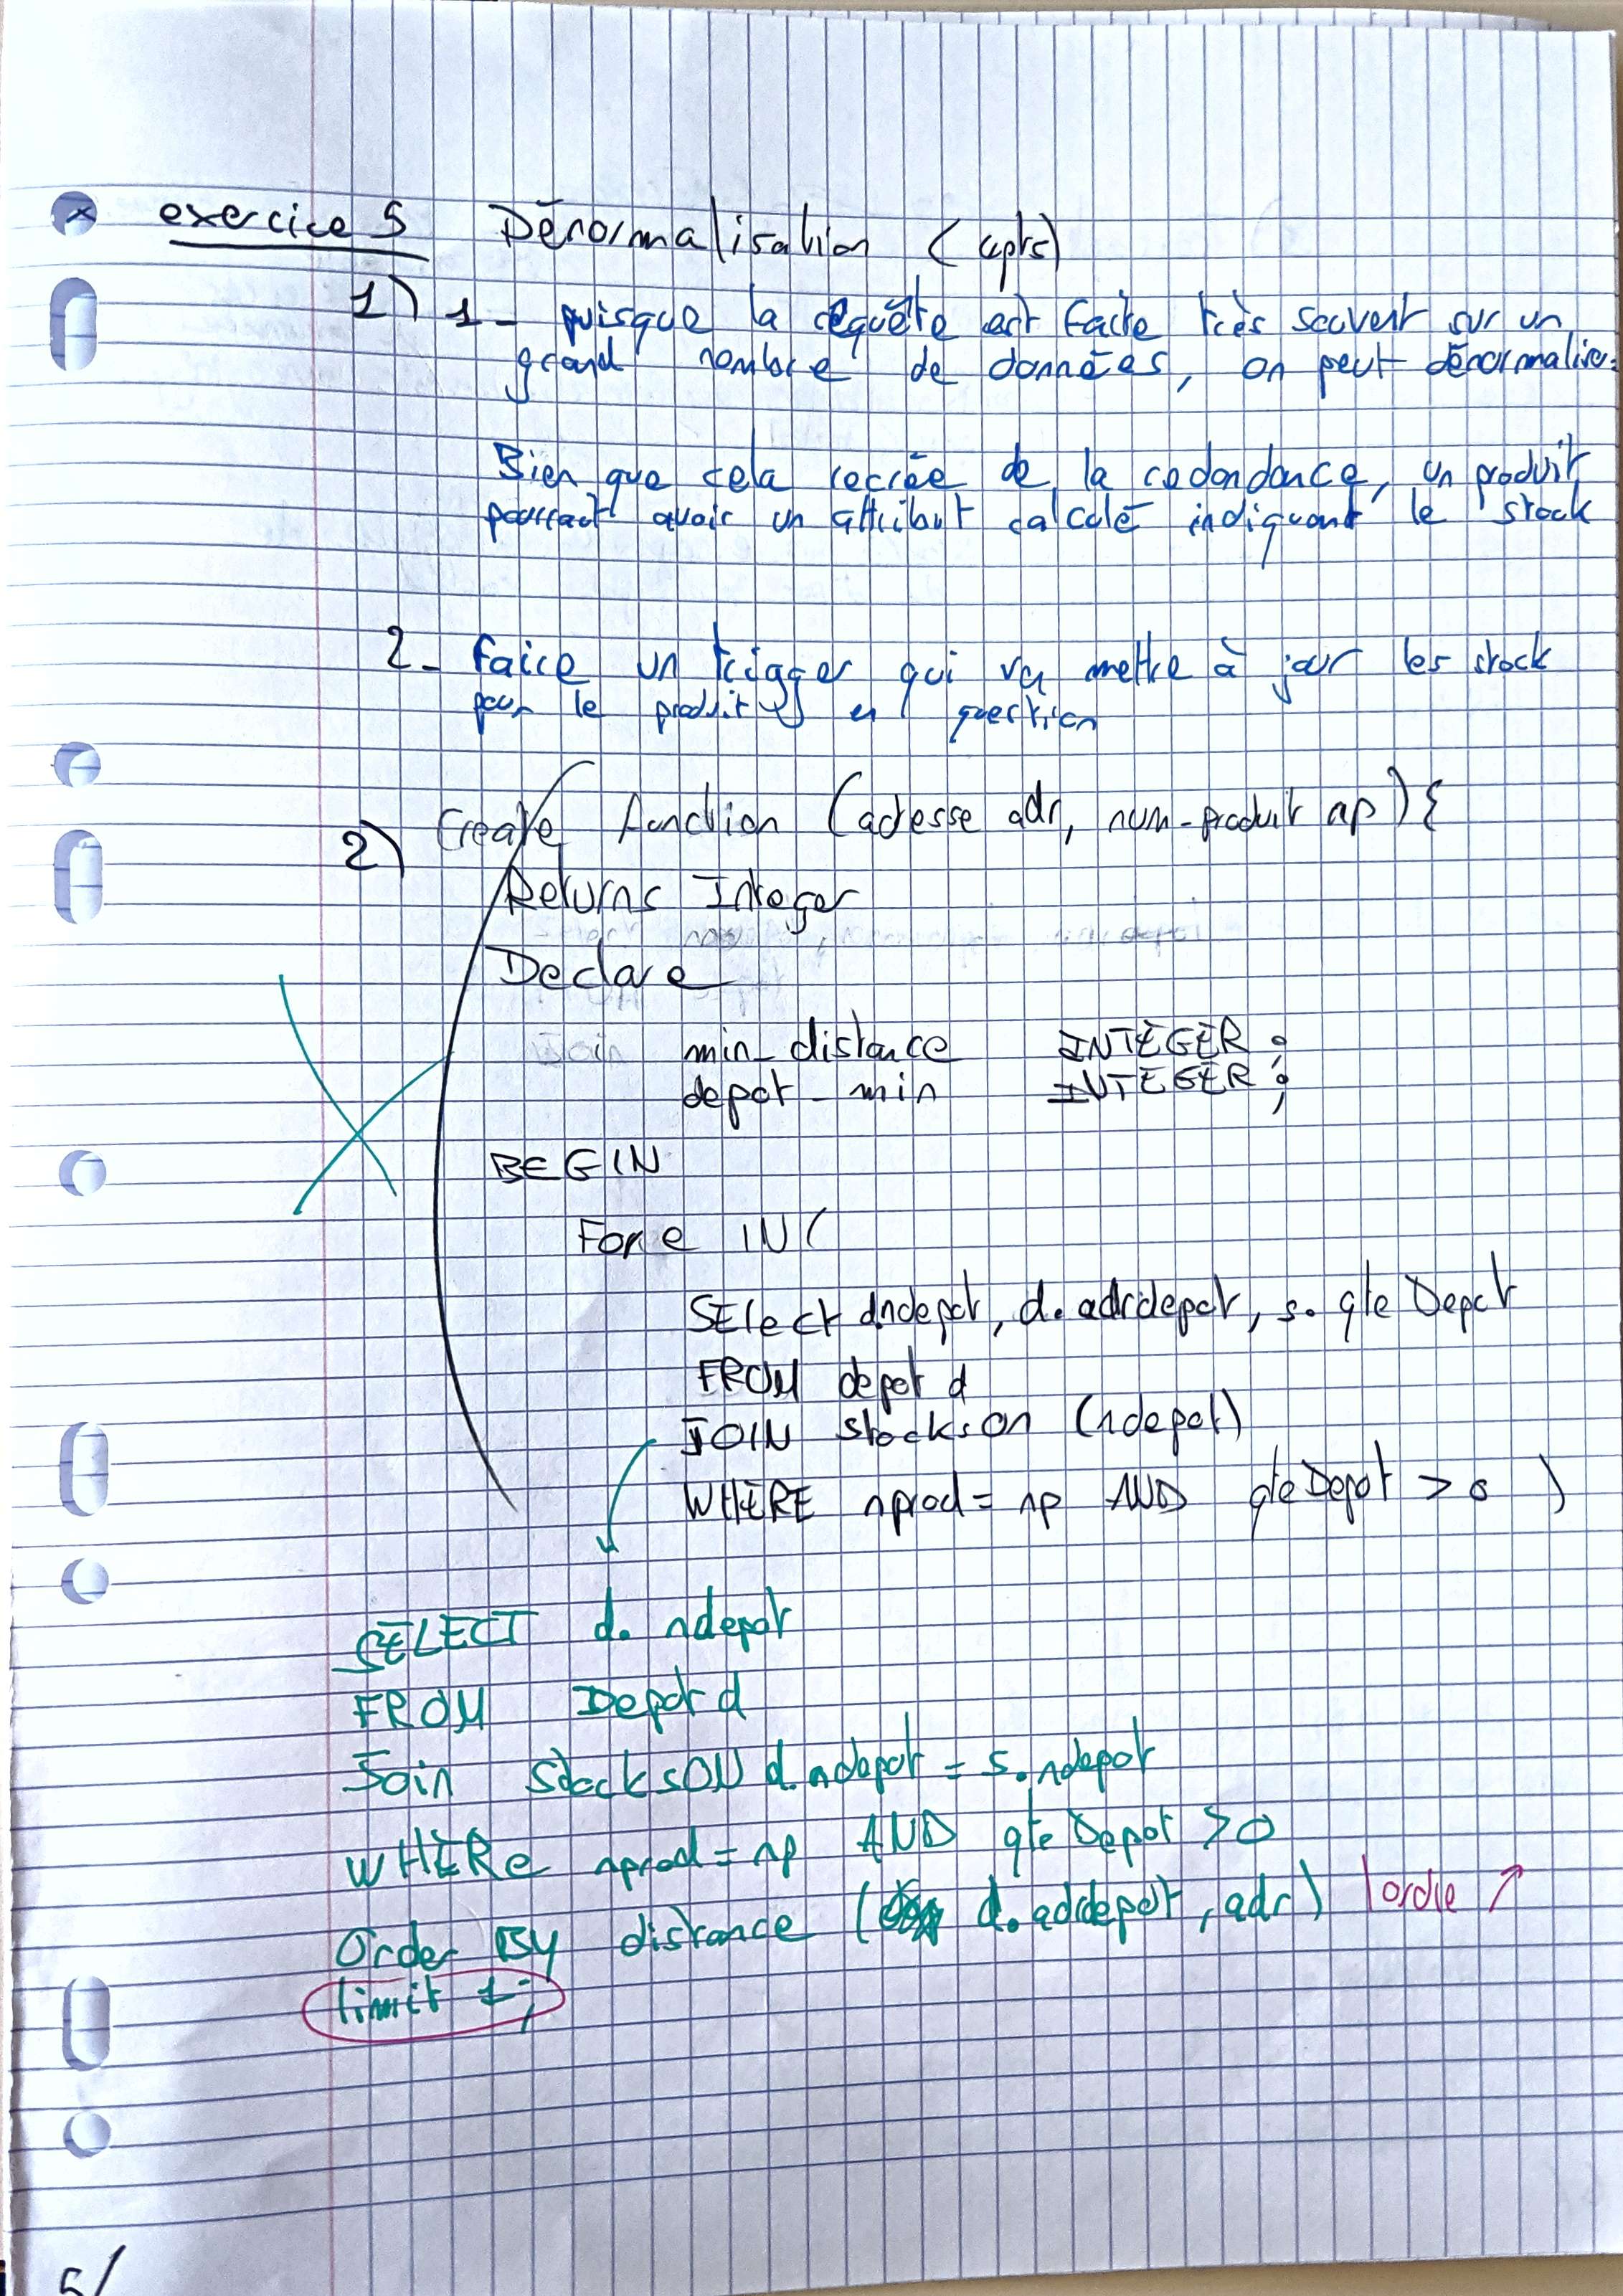 exercice 5 Dénormalisation (4pts)
1) 1- puisque la requête est faite très souvent sur un
grand nombre de données, on peut dénormaliser
Bien que cela recrée de la redondance, un produit
pourrait avoir un attribut calculé indiquant le stock
2- faire un trigger qui va mettre à jour les stock
pour le produit en question
2) Create fonction (adresse adr, num-produit np) {
Returns Integer
Declare
min_distance INTEGER ;
depot_min INTEGER ;
BEGIN
For e IN (
SElect d.ndepot, d.adrdepot, s.qteDepot
FROM depot d
JOIN stock s on (ndepot)
WHERE nprod = np AND qteDepot > 0 )
SELECT d.ndepot
FROM Depot d
Join Stock s ON d.ndepot = s.ndepot
WHERe nprod = np AND qteDepot > 0
Order By distance (d.addepot, adr) | ordre ↗
limit 1;
5/